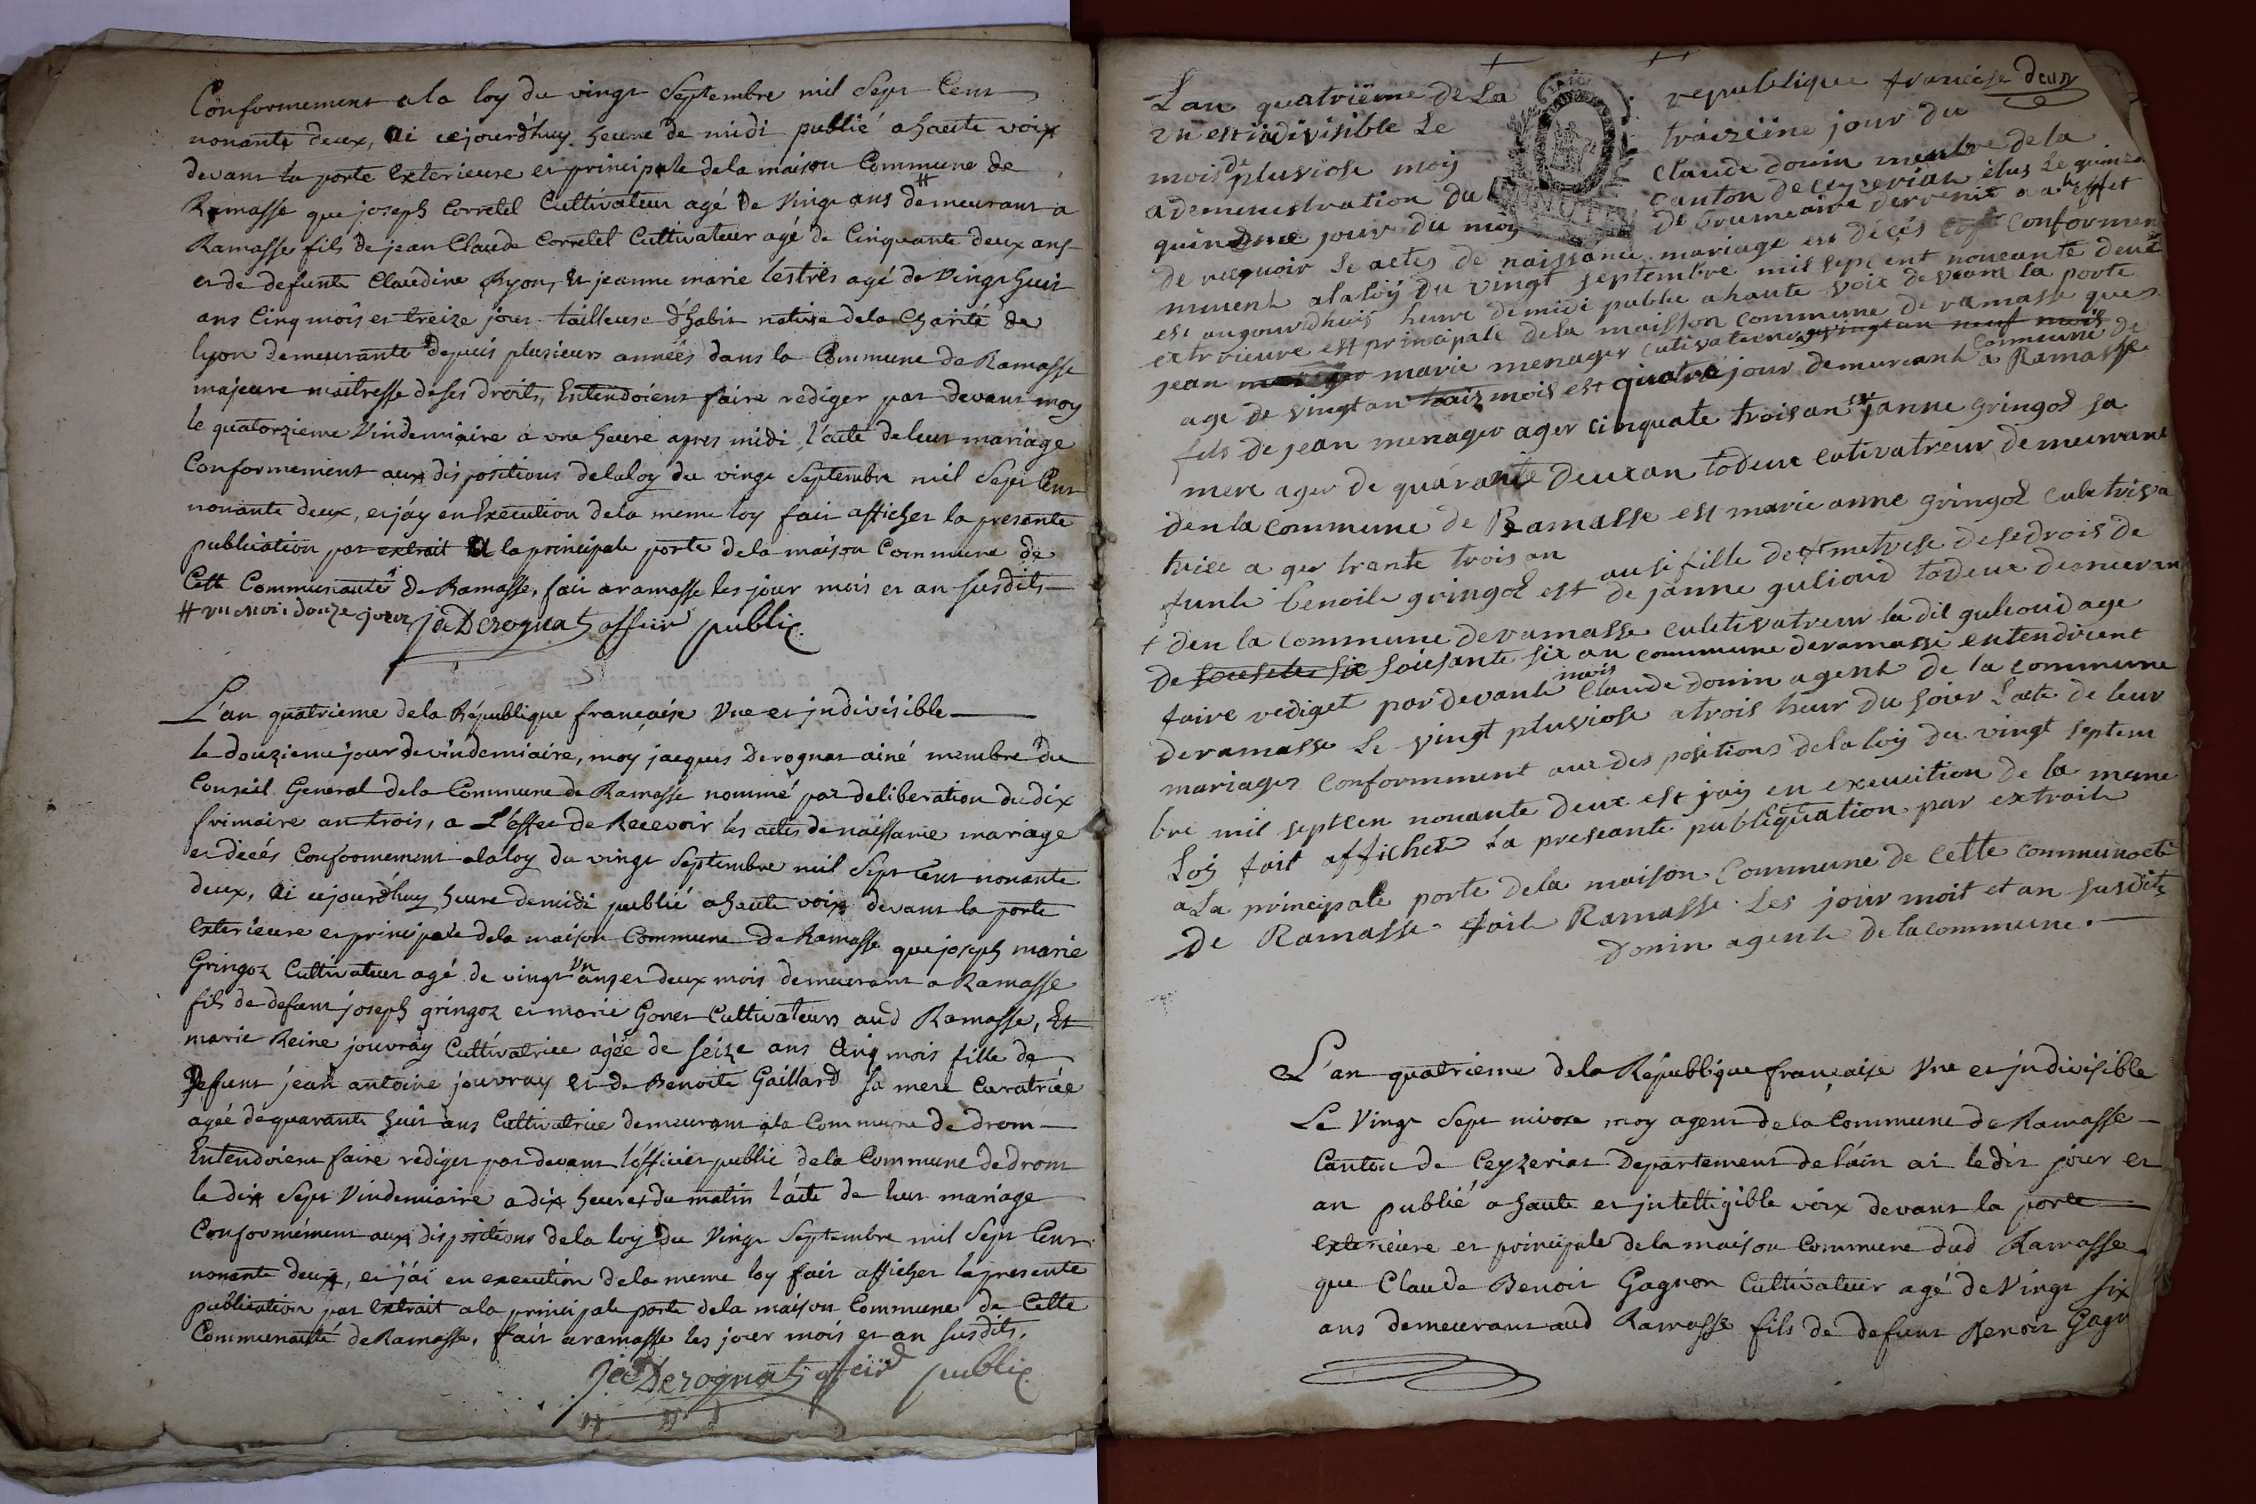 Conformement a la loy du vingt Septembre mil Sept Cent
nonante deux, ai cejourd'huy heure de midi publié a haute voix
devant la porte Exterieure et principale de la maison Commune de
Ramasse que joseph Corretel Cultivateur agé de Vingt ans # demeurant a
Ramasse fils de jean Claude Corretel Cultivateur agé de Cinquante deux ans
et de defunte Claudine Ryon, Et jeanne marie lestres agé de Vingt huit
ans Cinq mois et treize jour tailleuse d'habit native de la Charité de
lyon demeurante depuis plusieurs années dans la Commune de Ramasse
majeure maitresse de ses droits, Entendoient faire rediger par devant moy
le quatorzieme Vindemiaire a une heure apres midi l'acte de leur mariage
Conformement aux dispositions de la loy du vingt Septembre mil Sept Cent
nonante deux, et j'ay en Execution de la meme loy fait afficher la presente
publication par extrait a la principale porte de la maison Commune de
Cette Communauté de Ramasse, fait a ramasse les jour mois et an susdits
# un moi douze jour jes Derognat officir public
L'an quatrieme de la République francaise Une et jndivisible
le douzieme jour de vindemiaire, moy jacques Derognat ainé membre du
Conseil General de la Commune de Ramasse nommé par deliberation du dix
frimaire an trois, a L'effet de Recevoir les actes de naissance mariage
et décés Conformement a la loy du vingt Septembre mil Sept Cent nonante
deux, ai cejourd'huy heure de midi publié a haute voix devant la porte
Exterieure et principale de la maison Commune de Ramasse que joseph marie
Gringoz Cultivateur agé de vingt un ans et deux mois demeurant a Ramasse
fils de defunt joseph gringoz et marie Gonet Cultivateurs aud Ramasse, Et
marie Reine jouvray Cultivatrice agée de seize ans Cinq mois fille de
Defunt jean antoine jouvray et de Benoite Gaillard sa mere Curatrice
agée de quarante huit ans Cultivatrice demeurant a la Commune de drom
Entendoient faire rediger par devant l'officier public de la Commune de drom
le dix Sept Vindemiaire a dix heures du matin l'acte de leur mariage
Conformément aux dispositions de la loy du Vingt Septembre mil Sept Cent
nonante deux, et j'ai en execution de la meme loy fait afficher la presente
publication par Extrait a la principale porte de la maison Commune de Cette
Communauté de Ramasse, fait a ramasse les jour mois et an susdits.
Derognat officir public
Lan quatriëme de La republique francise deun
un est iidivisible Le traizeiine jour du
mois de pluviose moy Claude donin membre de la
ademenistration du Canton de ceyzeriat élus Le quinze
quindme jour du moy de brumeaire dervenit a a lesfet
de recevoir le actes de naissance mariage est décés conforme
mment a la loÿ du vingt septembre mil sept cent noueante deux
est augourdhuis heure de midi publie a haute voie devant la porte
extrieure est principale de la maisson commune de ramasse que
jean marie menager cutivateur vingt an neuf mois commune de
age de vingt an trois mois est quatre jour demeurant a Ramasse
fils de jean menager ager cinquate trois an et janne gringoz sa
mere ager de quarante deux an todeux cutivatreur demeurant
den la commune de Ramasse est marie anne gringoz cultriva
trice a ger trante trois an ausi fille de metrese de se drois de
funte benoite gringoz est de janne guliaud todeux demeuran
+ den la commune de ramasse cultivatreur la dit guliaud age
de soiesante six soiesante six an commune de ramasse entendient
faire rediget par devante mois Claude donin agent de la commune
de ramasse Le vingt pluviose a trois heur du soier Lacte de leur
mariages conformment aux des positions de la loy du vingt septem
bre mil septcen nonante deux est jaiy en execuition de la meme
Loy fait afficher La preseante publiquation par extraite
a La principale porte de la maison Commune de cette communoete
de Ramasse fait Ramasse Les jour moit et an susdits
Donin agente de la commune.
L'an quatrieme de la Républigue française Une et jndivisible
Le Vingt Sept nivose moy agent de la Commune de Ramasse
Canton de Ceyzeriat Departement de l'ain ai ledit jour et
an publié a haute et jntelligible voix devant la porte
Exterieure et principale de la maison Commune dud Ramasse
que Claude Benoit Gagnon Cultivateur agé de Vingt six
ans demeurant aud Ramasse fils de defunt Benoit Gagn